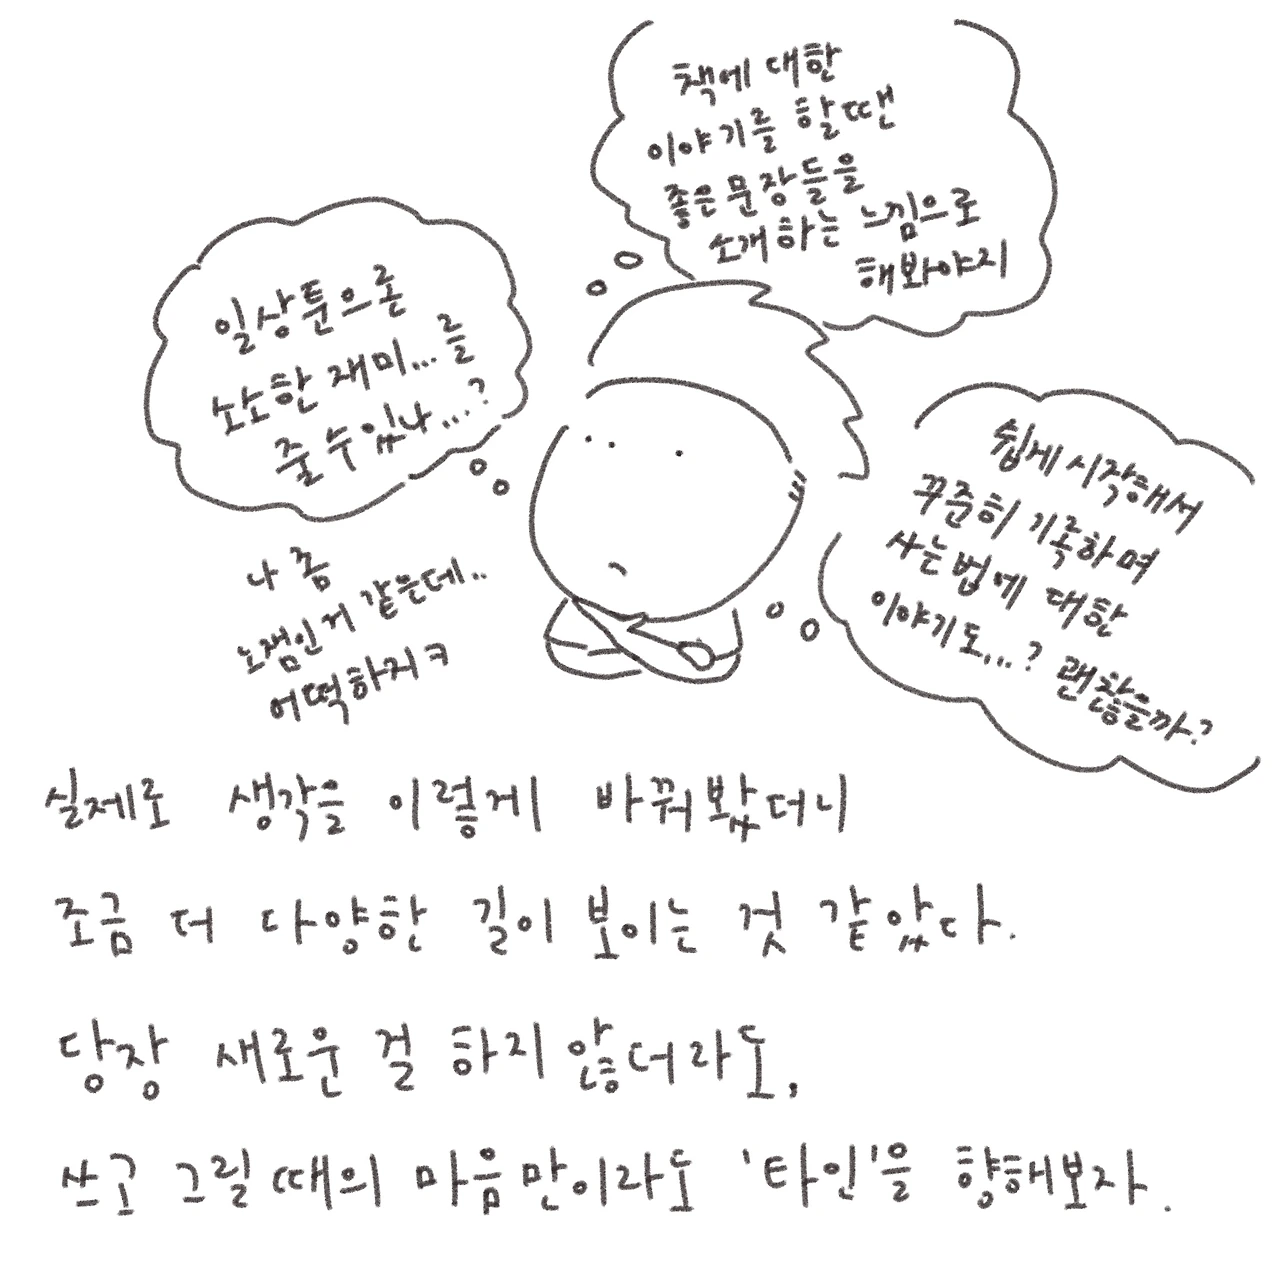 책에 대한
이야기를 할땐
좋은 문장들을
소개하는 느낌으로
해봐야지
일상툰으론
소소한 재미...를
줄 수 있나...?
쉽게 시작해서
꾸준히 기록하며
사는 법에 대한
이야기도...? 괜찮을까?
나 좀
노잼인거 같은데..
어떡하지ㅋ
실제로 생각을 이렇게 바꿔봤더니
조금 더 다양한 길이 보이는 것 같았다.
당장 새로운 걸 하지 않더라도,
쓰고 그릴 때의 마음만이라도 '타인'을 향해보자.